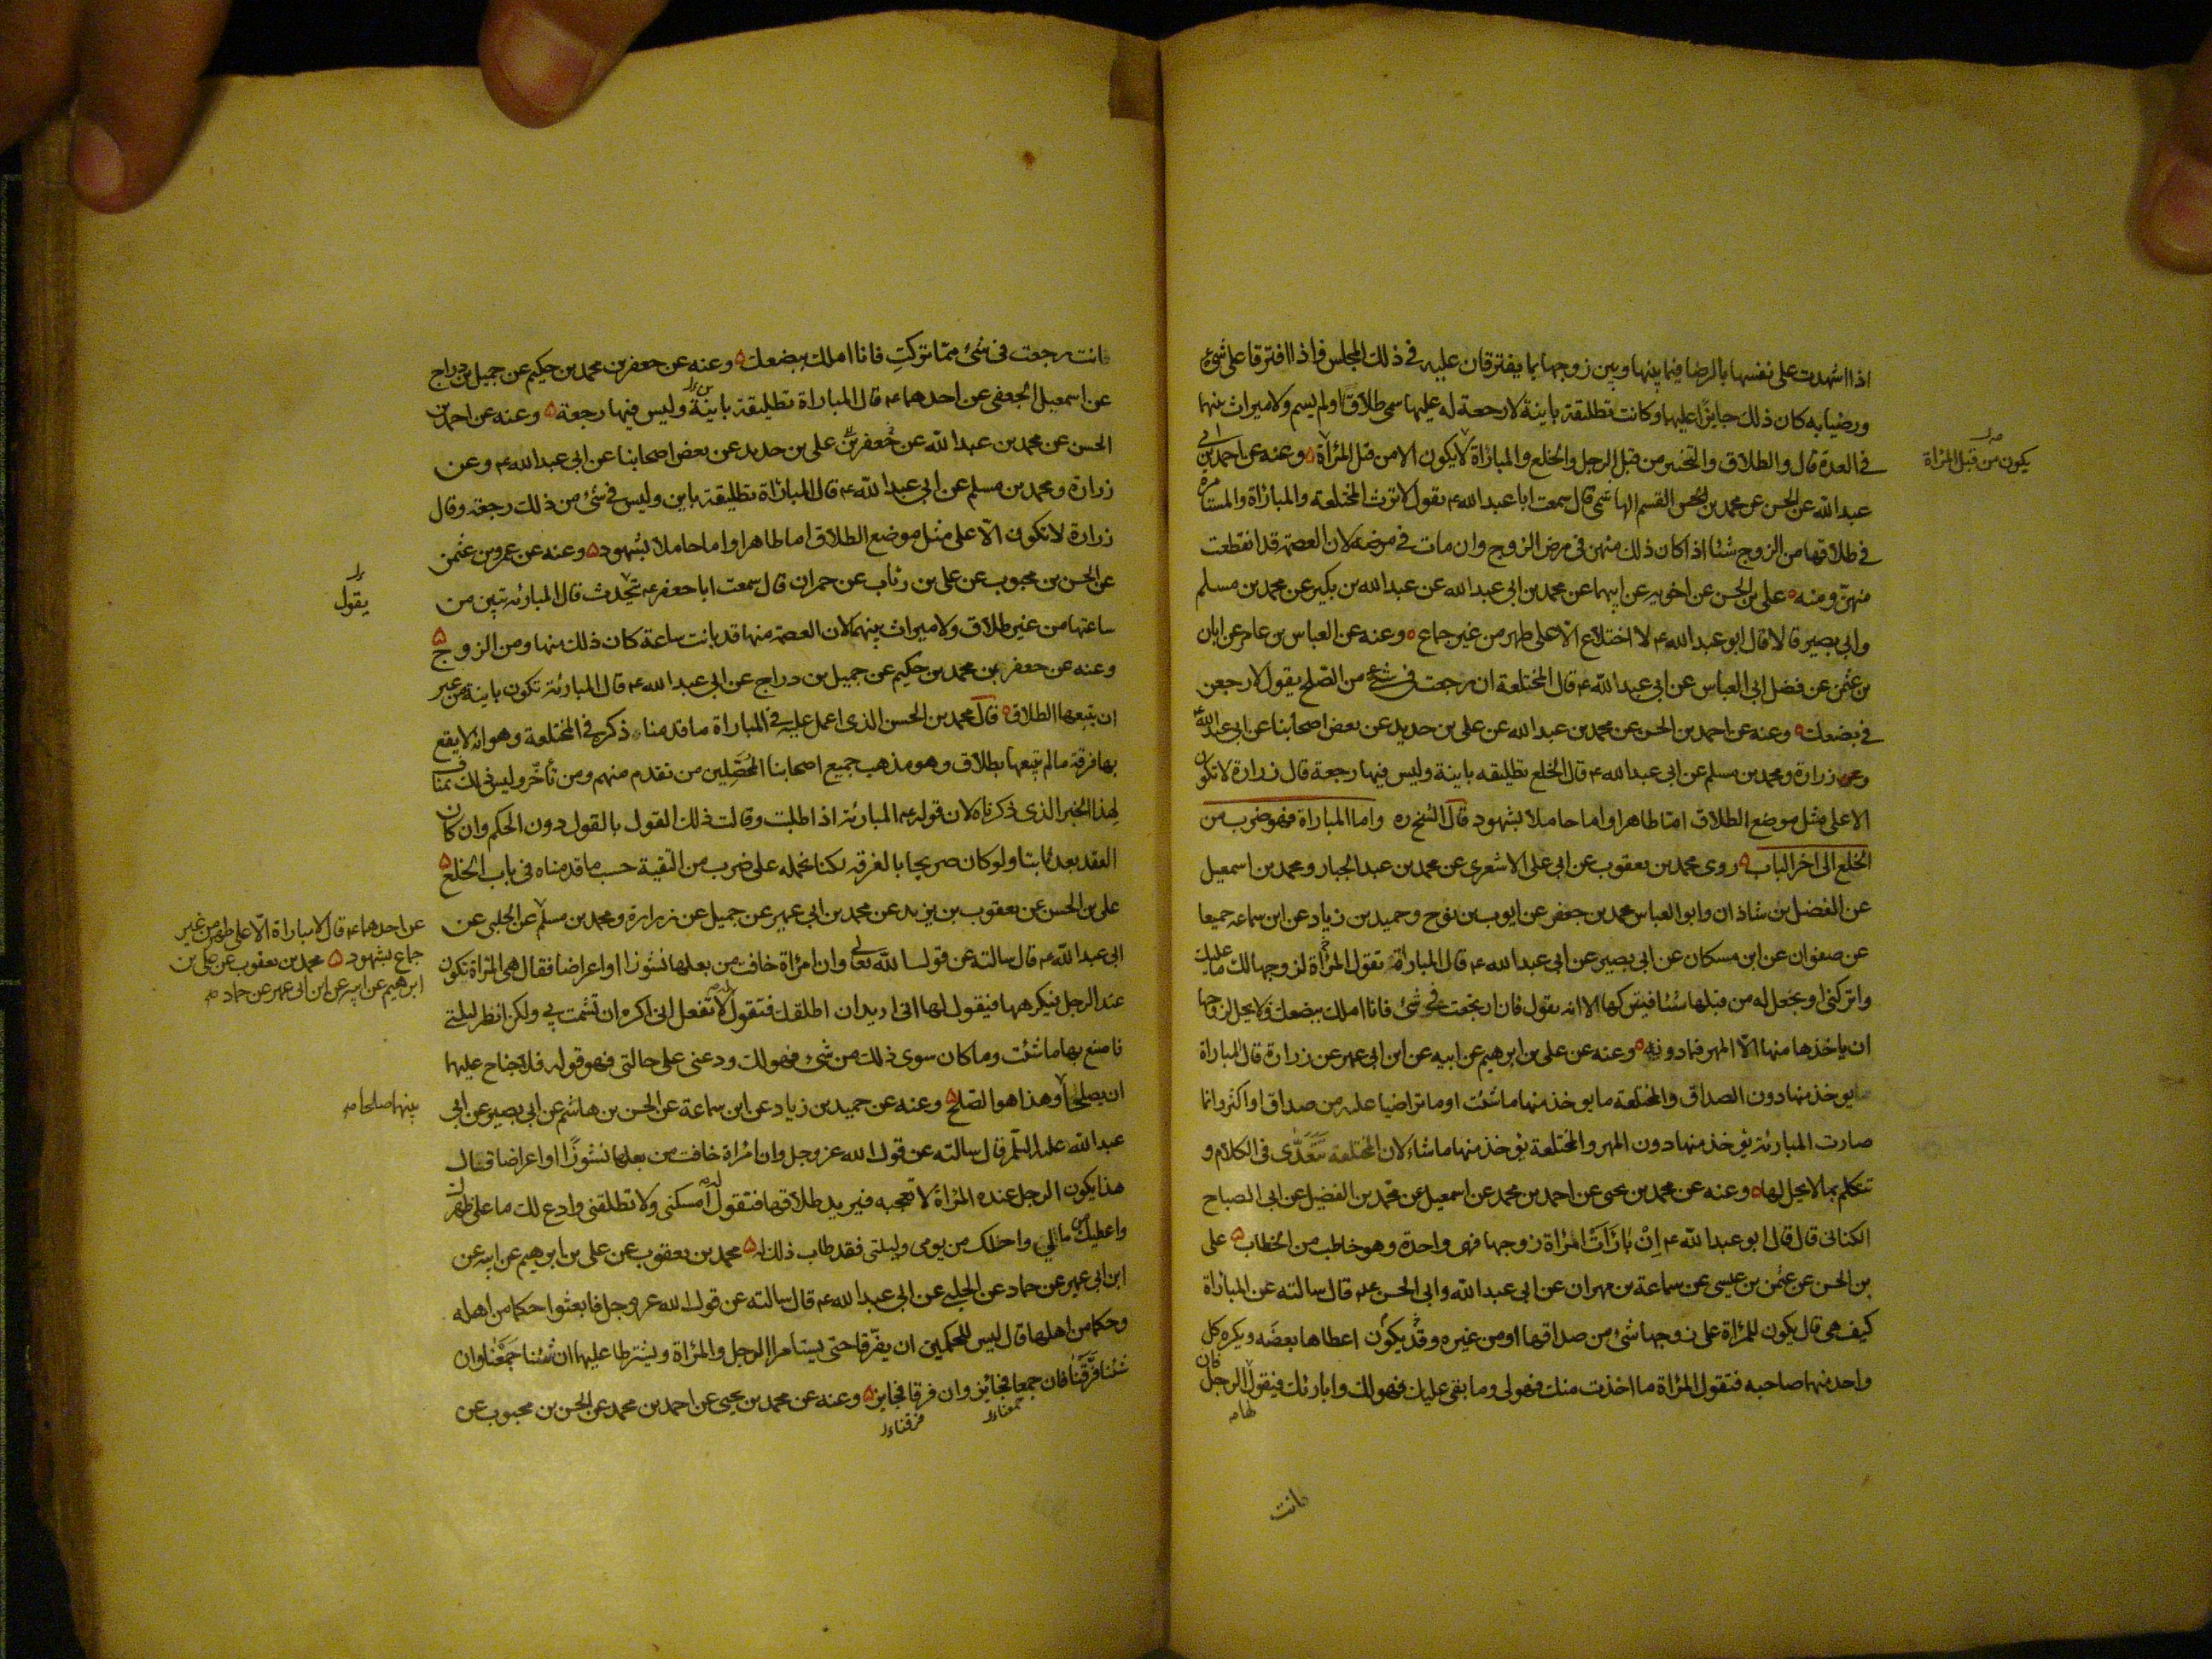 اذا اشهدت على نفسها بالرضا فيما بينها وبين زوجها بما يفترقان عليه في ذلك المجلس فاذا افترقا على شيء
ورضيا به كان ذلك جايزا عليهما وكانت تطليقة باينة لا رجعة له عليها سمى طلاقا او لم يسم ولا ميراث بينهما
في العدة قال والطلاق والتخيير من قبل الرجل والخلع والمباراة لا يكون الا من قبل المرأة وعنه عن احمد بن
يكون من قبل المرأة
عبد الله عن الحسن عن محمد بن الحسن القسم الهاشمي قال سمعت ابا عبد الله ع يقول لا ترث المختلعة والمباراة والمستامرة
في طلاقها من الزوج شئا اذا كان ذلك منهن في مرض الزوج وان مات في مرضه لان العصمة قد انقطعت
منهن ومنه علي بن الحسن عن اخويه عن ابيهما عن محمد بن ابي عبد الله عن عبد الله بن بكير عن محمد بن مسلم
وابي بصير قالا قال ابو عبد الله ع لا اختلاع الا على طهر من غير جماع وعنه عن العباس بن عامر عن ابان
بن عثمن عن فضل ابي العباس عن ابي عبد الله ع قال المختلعة ان رجعت في شيء من الصلح يقول لارجعن
في بضعك وعنه عن احمد بن الحسن عن محمد بن عبد الله عن علي بن حديد عن بعض اصحابنا عن ابي عبد الله ع
وعن زرارة ومحمد بن مسلم عن ابي عبد الله ع قال الخلع تطليقه باينة وليس فيها رجعة قال زرارة لا تكون
الا على مثل موضع الطلاق اما طاهرا واما حاملا بشهود قال الشيخ ره واما المباراة فهو ضرب من
الخلع الى اخر الباب روى محمد بن يعقوب عن ابي علي الاشعري عن محمد بن عبد الجبار ومحمد بن اسمعيل
عن الفضل بن شاذان وابو العباس محمد بن جعفر عن ايوب بن نوح وحميد بن زياد عن ابن سماعه جميعا
عن صفوان عن ابن مسكان عن ابي بصير عن ابي عبد الله ع قال المباراة تقول المرأة لزوجها لك ما عليك
واتركني او تجعل له من قبلها شئا فيتركها الا انه يقول فان ارتجعت في شئ فانا املك ببضعك ولا يحل لزوجها
ان ياخذها منها الا المهر فما دونه وعنه عن علي بن ابرهيم عن ابيه عن ابن ابي عمير عن زرارة قال المباراة
يوخذ منها دون الصداق والمختلعة ما يوخذ منها ما شئت او ما تراضيا عليه من صداق او اكثر وانما
صارت المبارئة يؤخذ منها دون المهر والمختلعة يؤخذ منها ما شاء لان المختلعة تتعدى في الكلام و
تتكلم بما لا يحل لها وعنه عن محمد بن يحيى عن احمد بن محمد عن اسمعيل عن محمد بن الفضيل عن ابي الصباح
الكناني قال قال ابو عبد الله ع ان بارأت المرأة زوجها فهي واحدة وهو خاطب من الخطاب على
بن الحسن عن عثمن بن عيسى عن سماعة بن مهران عن ابي عبد الله وابي الحسن ع قال سالته عن المباراة
كيف هي قال يكون للمرأة على زوجها شيء من صداقها او من غيره وقد يكون اعطاها بعضه ويكره كل
واحد منهما صاحبه فتقول المرأة ما اخذت منك فهو لي وما بقي عليك فهو لك وابارئك فيقول الرجل
لها
فانت
فانت رجعت في شئ مما تركت فانا املك ببضعك وعنه عن جعفر بن محمد بن حكيم عن جميل بن دراج
عن اسمعيل الجعفي عن احدهما ع قال المباراة تطليقة باينة وليس فيها رجعة وعنه عن احمد بن
الحسن عن محمد بن عبد الله عن جعفر بن علي بن حديد عن بعض اصحابنا عن ابي عبد الله ع وعن
زرارة ومحمد بن مسلم عن ابي عبد الله ع قال المباراة تطليقة باين وليس في شئ من ذلك رجعة وقال
زرارة لا تكون الا على مثل موضع الطلاق اما طاهرا واما حاملا بشهود وعنه عن عمرو بن عثمن
عن الحسن بن محبوب عن علي بن رئاب عن حمران قال سمعت ابا جعفر ع يتحدث قال المبارئه تبين من
يقول
ساعتها من غير طلاق ولا ميراث بينهما لان العصمة منها قد بانت ساعة كان ذلك منها ومن الزوج
وعنه عن جعفر بن محمد بن حكيم عن جميل بن دراج عن ابي عبد الله ع قال المبارئة تكون باينة من غير
ان يتبعها الطلاق قال محمد بن الحسن الذي اعمل عليه في المباراة ما قدمنا ذكره في المختلعة وهو انه لا يقع
بها فرقة ما لم يتبعها بطلاق وهو مذهب جميع اصحابنا المحصلين من تقدم منهم ومن تأخر وليس ذلك بمناف
لهذا الخبر الذي ذكرناه لان قوله ع المبارئة اذا طلبت وقالت ذلك القول بالقول دون الحكم وان كان
العقد بعد ثابتا ولو كان صريحا بالفرقه لكنا نحمله على ضرب من التقية حسب ما قدمناه في باب الخلع
علي بن الحسن عن يعقوب بن يزيد عن محمد بن ابي عمير عن جميل عن زرارة ومحمد بن مسلم عن الحلبي عن
عن احدهما ع قال لا مباراة الا على طهر من غير
جماع بشهود محمد بن يعقوب عن علي بن
ابرهيم عن ابيه عن ابن ابي عمير عن حماد
ابي عبد الله ع قال سالته عن قول الله تعالى وان امرأة خافت من بعلها نشوزا او اعراضا فقال هي المرأة تكون
عند الرجل فيكرهها فيقول لها اني اريد ان اطلقك فتقول لا تفعل اني اكره ان تشمت بي ولكن انظر ليلتي
فاصنع بها ما شئت وما كان سوى ذلك من شئ فهو لك ودعني على حالتي فهو قوله فلا جناح عليهما
ان يصلحا وهذا هو الصلح وعنه عن حميد بن زياد عن ابن سماعة عن الحسن بن هاشم عن ابي بصير عن ابي
بينهما صلحا
عبد الله عليه السلم قال سالته عن قول الله عز وجل وان امرأة خافت من بعلها نشوزا او اعراضا قال
هذا يكون الرجل عنده المرأة لا تعجبه فيريد طلاقها فتقول له امسكني ولا تطلقني وادع لك ما على ظهرك
واعطيك من مالي واحلك من يومي وليلتي فقد طاب ذلك له محمد بن يعقوب عن علي بن ابرهيم عن ابيه عن
ابن ابي عمير عن حماد عن الحلبي عن ابي عبد الله ع قال سالته عن قول الله عز وجل فابعثوا حكما من اهله
وحكما من اهلها قال ليس للحكمين ان يفرقا حتى يستامرا الرجل والمرأة ويشترطا عليهما ان شئنا جمعنا وان
شئنا فرقنا فان جمعا فجائز وان فرقا فجايز وعنه عن محمد بن يحيى عن احمد بن محمد عن الحسن بن محبوب عن
جمعنا
فرقنا